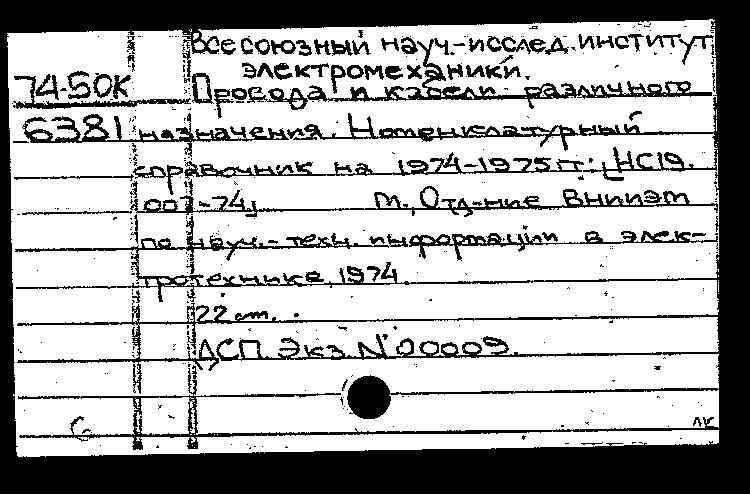 Всесоюзный науч.-исслед. институт
электромеханики.
74-50К Провода и кабели различного
6381 назначения. Номенклатурный
справочник на 1974-1975 гг.: [НС19.
007-74]. М., Отд-ние ВНИИЭМ
по науч.-техн. информации в элек-
тротехнике, 1974.
22 см.
ДСП. Экз. №00009.